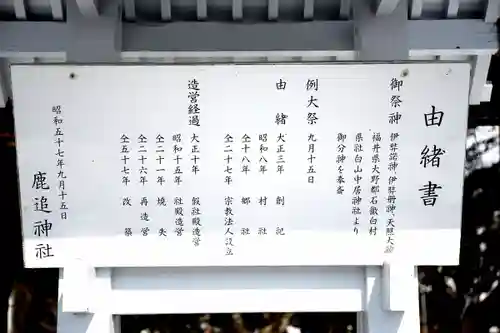 由緒書
御祭神 伊弉諾神、伊弉冊神、天照大神
福井県大野郡石徹白村
県社白山中居神社より
御分神を奉斎
例大祭 九月十五日
由緒 大正三年 創記
昭和八年 村社
仝十八年 郷社
仝二十七年 宗教法人設立
造営経過 大正十年 仮社殿造営
昭和十五年 社殿造営
仝二十一年 焼失
仝二十六年 再造営
仝五十七年 改築
昭和五十七年九月十五日
鹿追神社